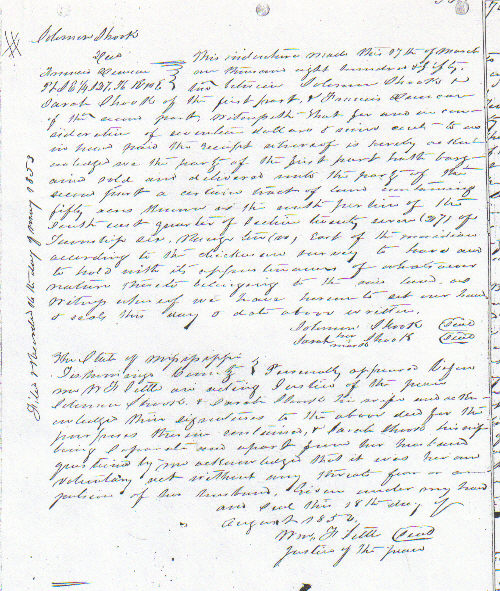 Solomon Shook
Deed
Francis Duncan
This indenture made this 27th of March
one thousand eight hundred & fifty
two between Solomon Shook &
Sarah Shook of the first part, & Francis Duncan
of the second part, Witnesseth That for and in con
sideration of seventeen dollars & nine cents to us
in hand paid the receipt whereof is hereby ackn
owledged we the party of the first part hath barg
ained sold and delivered unto the party of the
second part a certain tract of land containing
fifty acres known as the south portion of the
South east quarter of Section twenty seven (27) of
Township six, Range ten (10) East of the meridian
according to the survey to have and
to hold with its appurtenances of whatsoever
nature thereto belonging to the said land. as
Witness whereof we have hereunto set our hand
& seals this day & date above written.
Solomon Shook Seal
Sarah her mark Shook Seal
The State of Mississippi
Tishomingo County Personally appeared before
me W H Little an acting Justice of the peace
Solomon Shook & Sarah Shook his wife and ackn
owledged their signatures to the above deed for the
purposes therein contained, & Sarah Shook his wife
being separate and apart from her husband
questioned by me acknowledged that it was her own
voluntary act without any threats fear or com
pulsion of her husband. Given under my hand
and seal this 18th day of
August 1852.
Wm H Little Seal
Justice of the peace
Filed & Recorded 16th day of May 1853